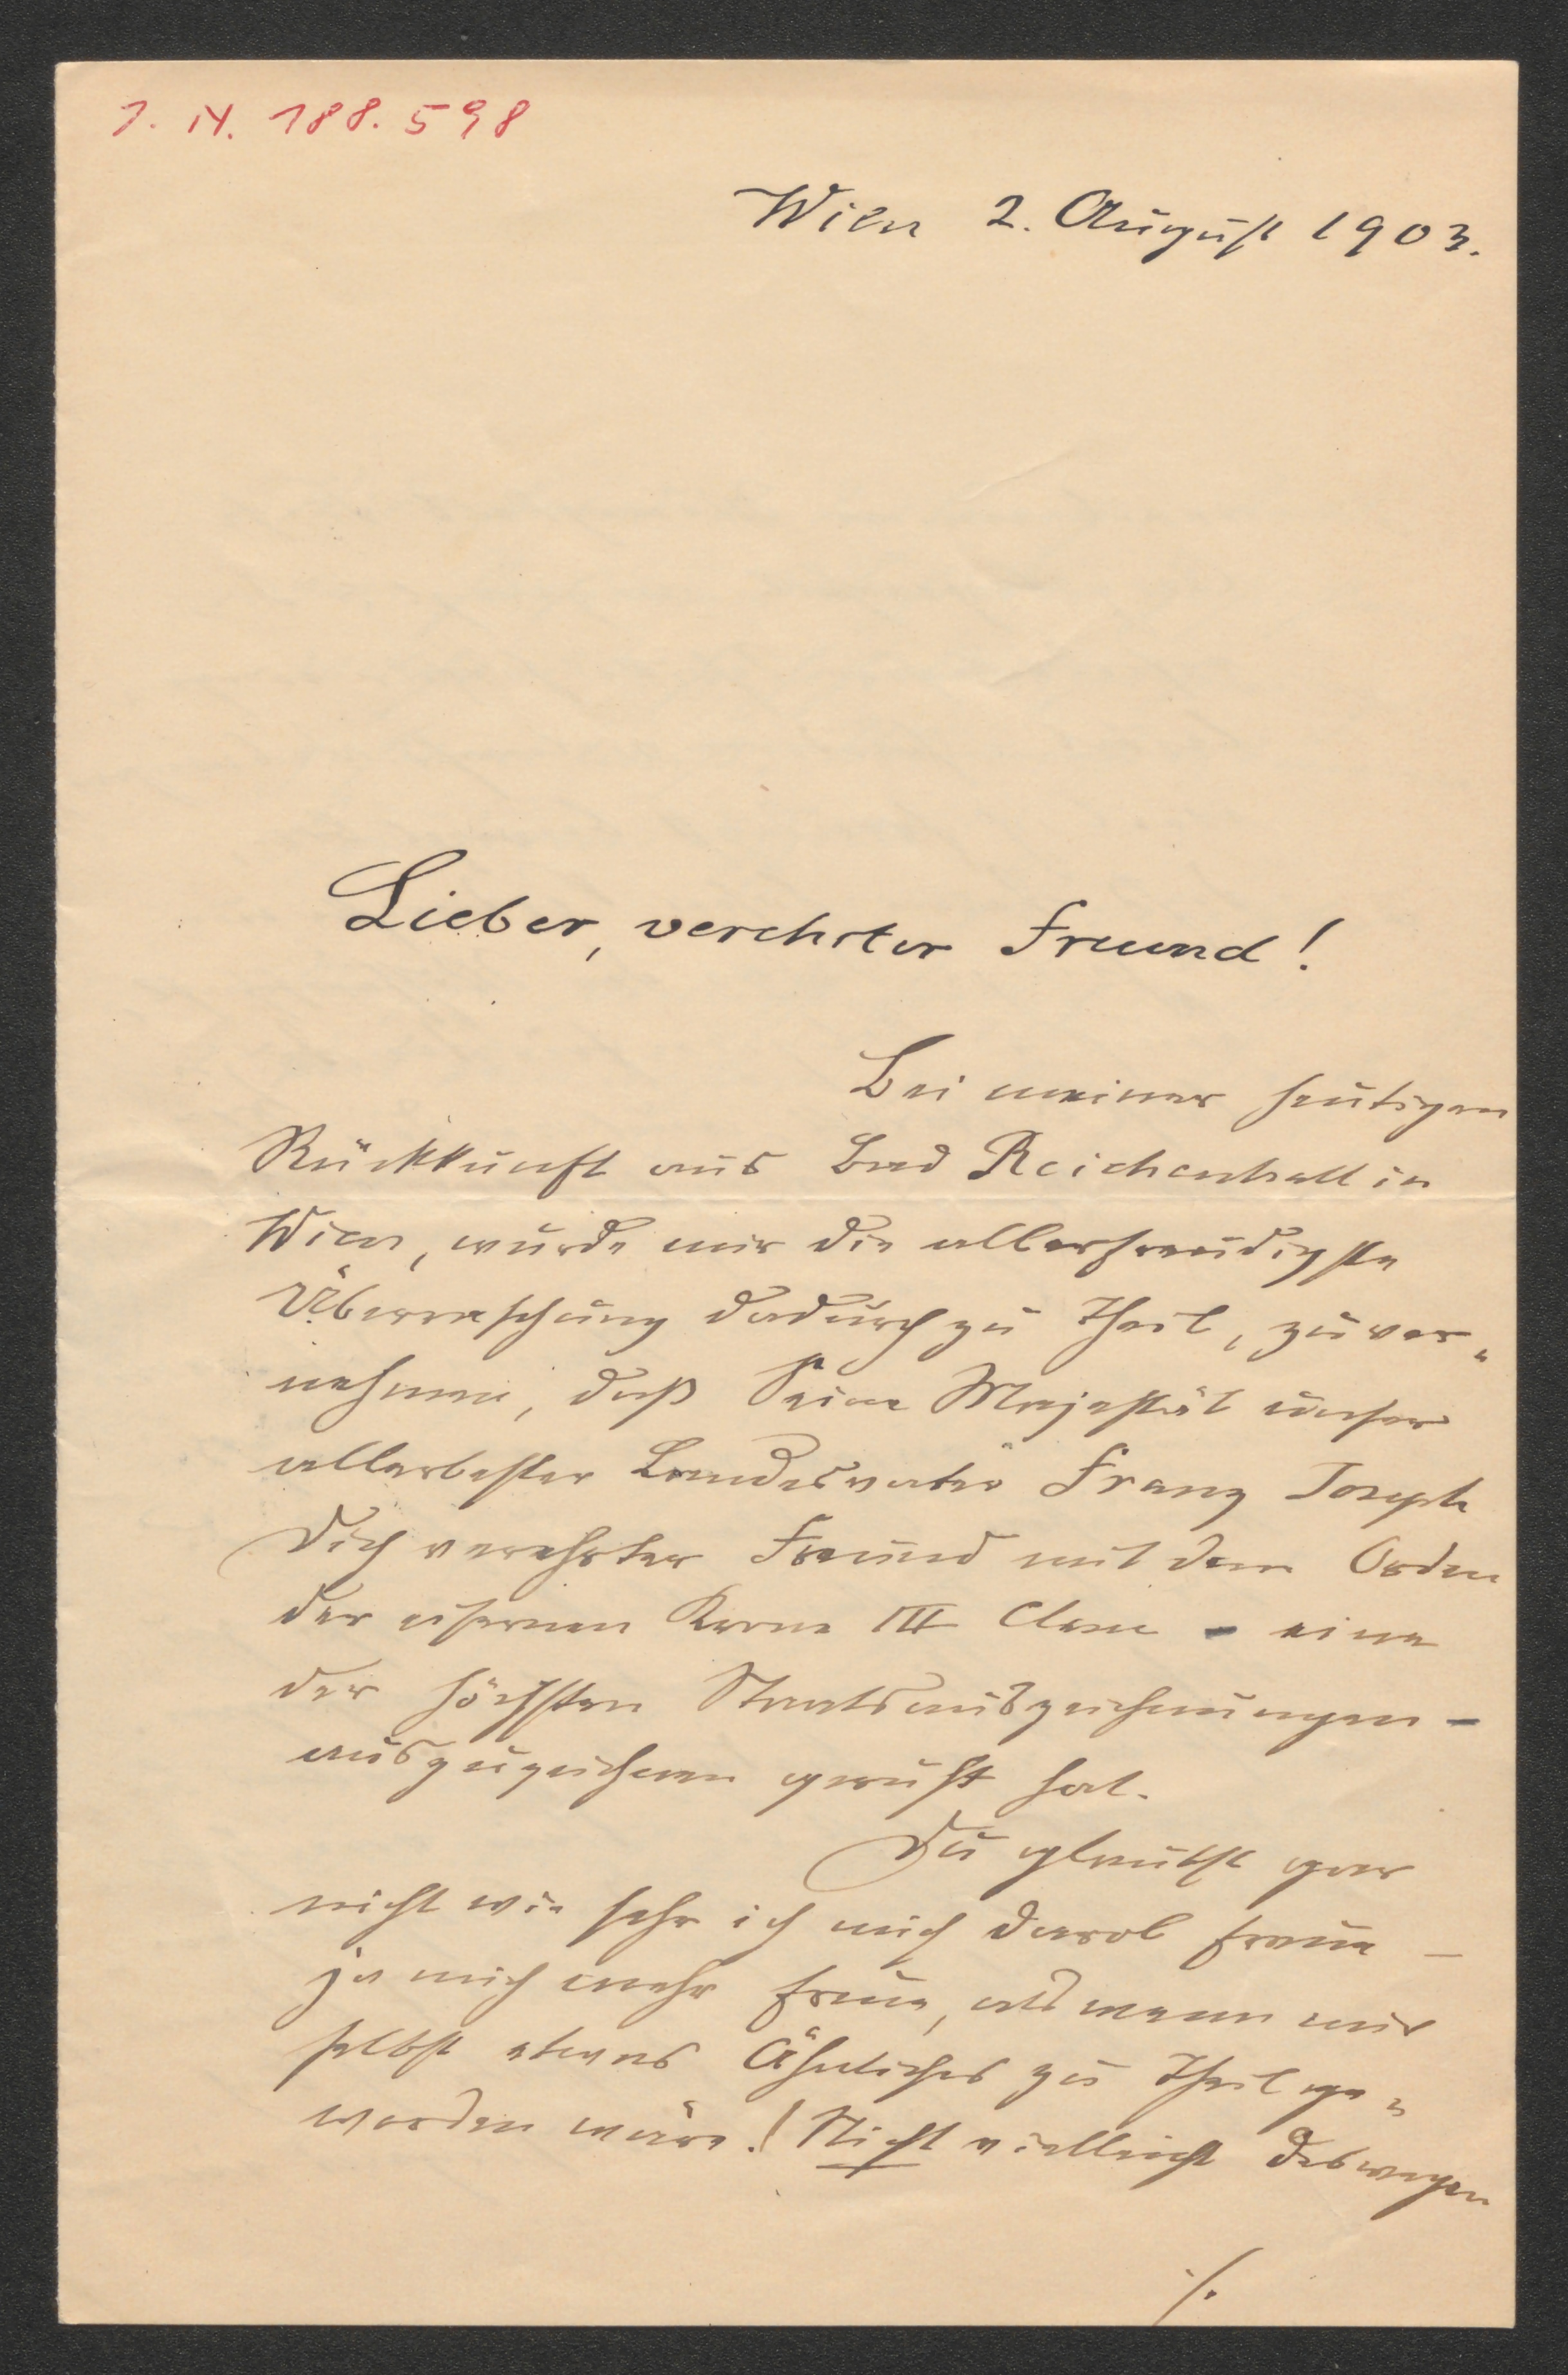 I. N. 188.598
Wien 2. August 1903.
Lieber, verehrter Freund!
Bei meiner heutigen
Rückkunft aus Bad Reichenhall in
Wien, wurde mir die allerfreudigste
Überraschung dadurch zu Theil, zu ver„
nehmen, daß Seine Majestät unser
allerbester Landesvater Franz Joseph
Dich verehrter Freund mit dem Orden
der eisernen Krone III Classe - eine
der höchsten Staatsauszeichnungen -
auszuzeichnen geruht hat.
Du glaubst gar
nicht wie sehr ich mich darob freue –
ja mich mehr freue, als wenn mir
selbst etwas Ähnliches zu Theil ge„
worden wäre! Nicht vielleicht deswegen
./.